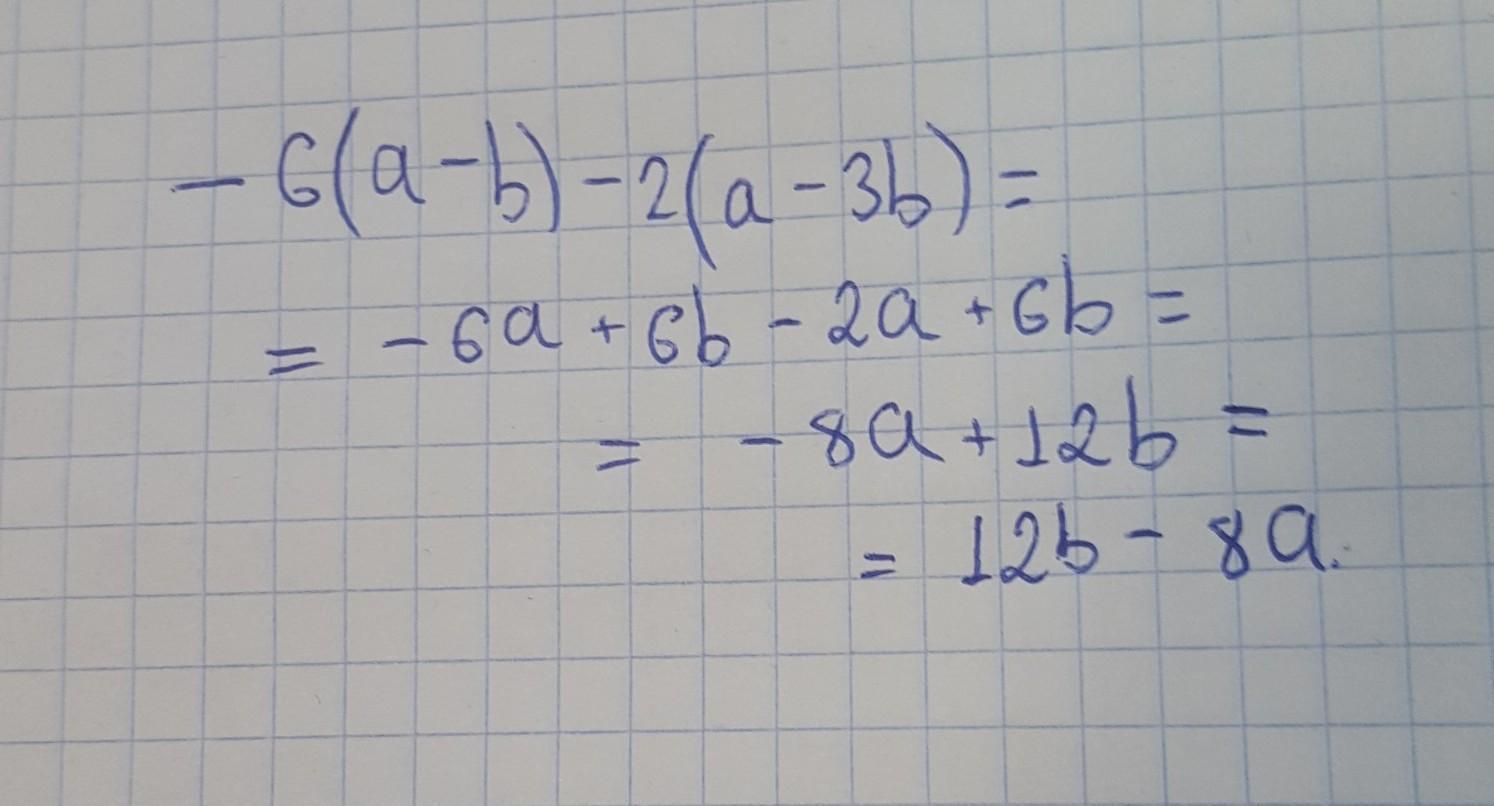 - 6(a-b)-2(a-3b)=
= -6a+6b-2a+6b=
= -8a+12b=
= 12b-8a.